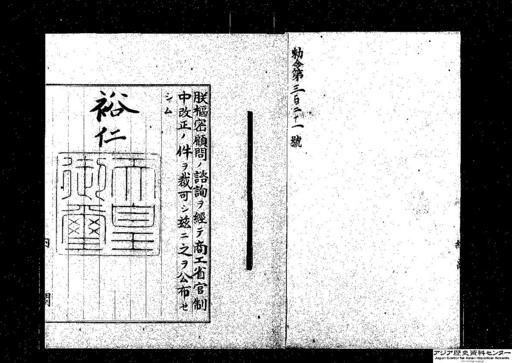 勅令第三百二十一號
朕樞密顧問ノ諮詢ヲ經テ商工省官制
中改正ノ件ヲ裁可シ茲ニ之ヲ公布セ
シム
裕仁
天皇
御璽
内閣
アジア歴史資料センター
Japan Center for Asian Historical Records